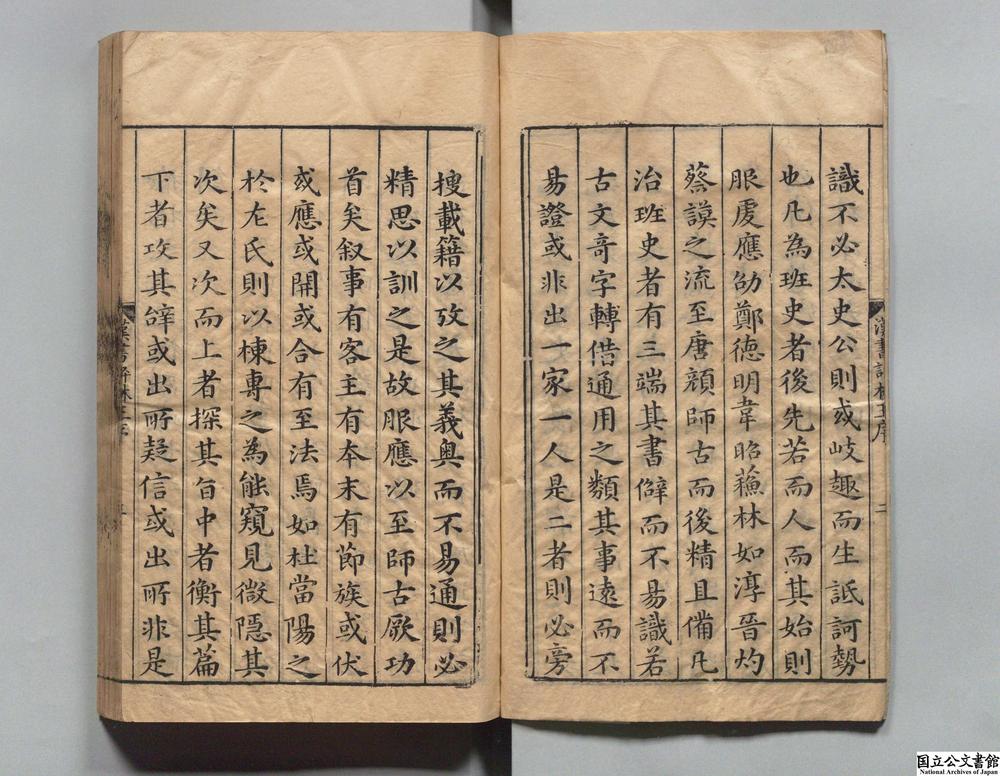 識不必太史公則或岐趣而生詆訶勢
也凡為班史者後先若而人而其始則
服䖍應劭鄭德明韋昭蘓林如淳晉灼
蔡謨之流至唐顔師古而後精且備凡
治班史者有三端其書僻而不易識若
古文奇字轉借通用之類其事遠而不
易證或非出一家一人是二者則必旁
搜載籍以攷之其義奥而不易通則必
精思以訓之是故服應以至師古厥功
首矣叙事有客主有夲末有節族或伏
或應或開或合有至法焉如杜當陽之
於左氏則以棟專之為能窺見微隱其
次矣又次而上者探其旨中者衡其篇
下者攻其辞或出所疑信或出所非是
漢書評林王序 二
漢書評林王序 三
国立公文書館
National Archives of Japan